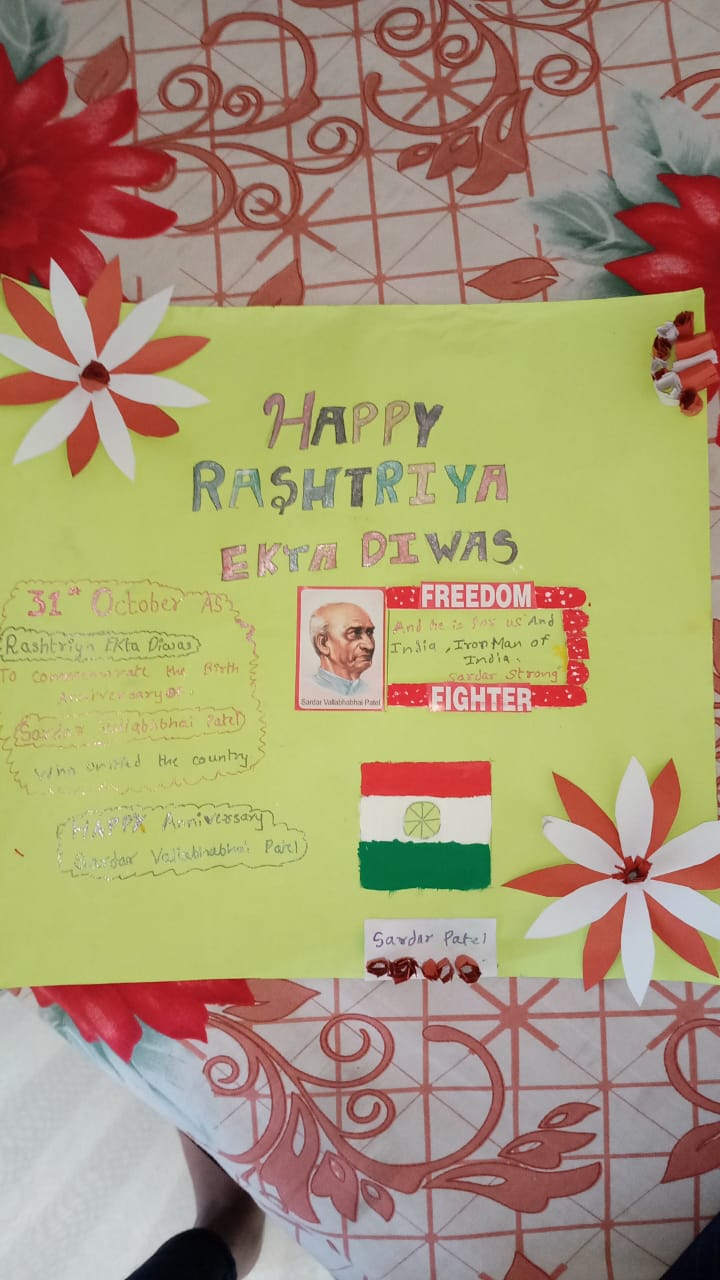 HAPPY
RASHTRIYA
EKTA DIWAS
31st October AS
Rashtriya EKta Diwas
To commemorate the Birth
Anniversary of
Sardar Vallabhbhai Patel
Who unified the country
HAPPY Anniversary
Sardar Vallabhabhai Patel
Sardar Vallabhabhai Patel
FREEDOM
And he is for us And
India , Iron Man of
India.
Sardar Strong"
FIGHTER
Sardar Patel